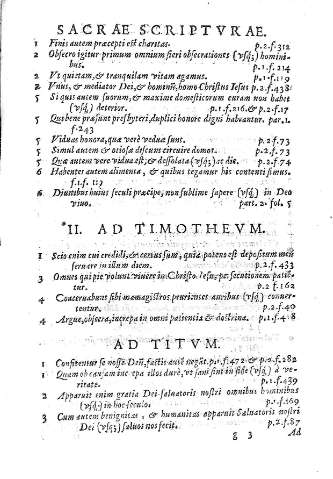 SACRAE SCRIPTVRAE.
1 Finis autem præcepti est charitas. p.2.f.312
2 Obsecro igitur primum omnium fieri obsecrationes (vsq;) homini-
bus. p.1.f.214
2 Vt quietam, & tranquilam vitam agamus. p.1.f.119
2 Vnus, & mediator Dei, & hominũ, homo Christus Iesus p.2.f.438
5 Si quis autem suorum, & maxime domesticorum curam non habet
(vsq;) deterior. p.1.f.216. & p.2.f.17
5 Qui bene præsunt presbyteri, duplici honore digni habeantur. par.1.
f.243
5 Viduas honora, quæ verè viduæ sunt. p.2.f.73
5 Simul autem & otiosæ discunt circuire domos. p.2.f.73
5 Quæ autem vere vidua est, & desolata (vsq;) ac die. p.2.f.74
6 Habentes autem alimenta, & quibus tegamur his contenti simus.
f.1.f.
6 Diuitibus huius seculi præcipe, non sublime sapere (vsq;) in Deo
viuo. part. 2. fol. 5
II. AD TIMOTHEVM.
1 Scio enim cui credidi, & certus sum, quia potens est depositum meũ
seruare in illum diem. p.2.f.433
3 Omnes qui pie volunt viuere in Christo Iesu, persecutionem patien-
tur. p.2.f.162
4 Coaceruabunt sibi magistros prurientes auribus (vsq;) conuer-
tentur. p.2.f.40
4 Argue, obsecra, increpa in omni patientia & doctrina. p.1.f.418
AD TITVM.
1 Confitentur se nosse Deũ, factis autẽ negãt. p.1.f.472 & p.2.f.282
1 Quam ob causam increpa illos durè, vt sani sint in fide (vsq;) a ve-
ritate. p.1.f.439
2 Apparuit enim gratia Dei saluatoris nostri omnibus hominibus
(vsq;) in hoc seculo. p.1.f.169
3 Cum autem benignitas, & humanitas apparuit Saluatoris nostri
Dei (vsq;) saluos nos fecit. p.2.f.87
g 3 Ad